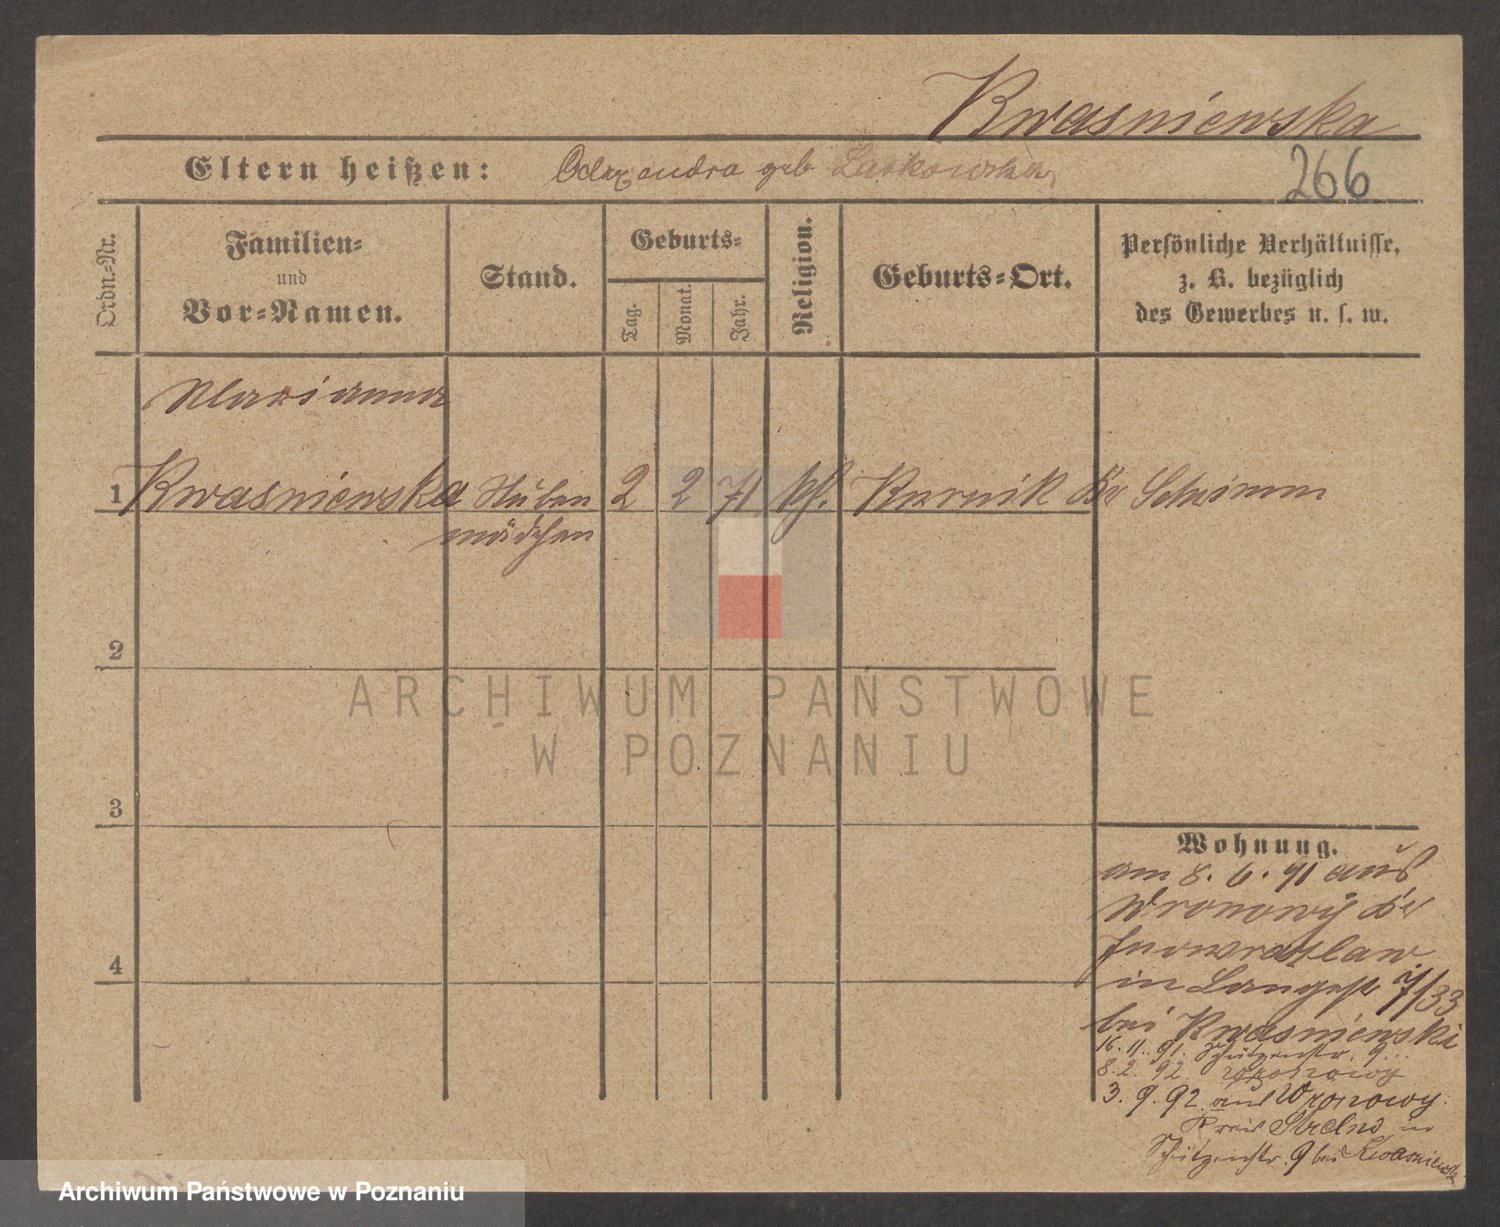 Kwasniewska
Eltern heißen: Alexandra geb Laskowska
266
Ordn.-Nr.
Familien-
und
Vor-Namen.
Stand.
Geburts-
Tag.
Monat.
Jahr.
Religion.
Geburts-Ort.
Persönliche Verhältnisse,
z. B. bezüglich
des Gewerbes u. s. w.
Marianna
1 Kwasniewska Stuben 2 2 71 kth. Kurnik Kr Schrimm
mädchen
2
ARCHIWUM PAŃSTWOWE
W POZNANIU
3
Wohnung.
am 8. 6. 91 aus
Wronowy Kr
Inowrazlaw
4
in Langestr 7/33
bei Kwasniewski
16. 11. 91. Schützenstr. 9
8. 2. 92 Wronowy
3. 9. 92 aus Wronowy
Kreis Strelno in
Schützenstr. 9 bei Kwasniewska
Archiwum Państwowe w Poznaniu